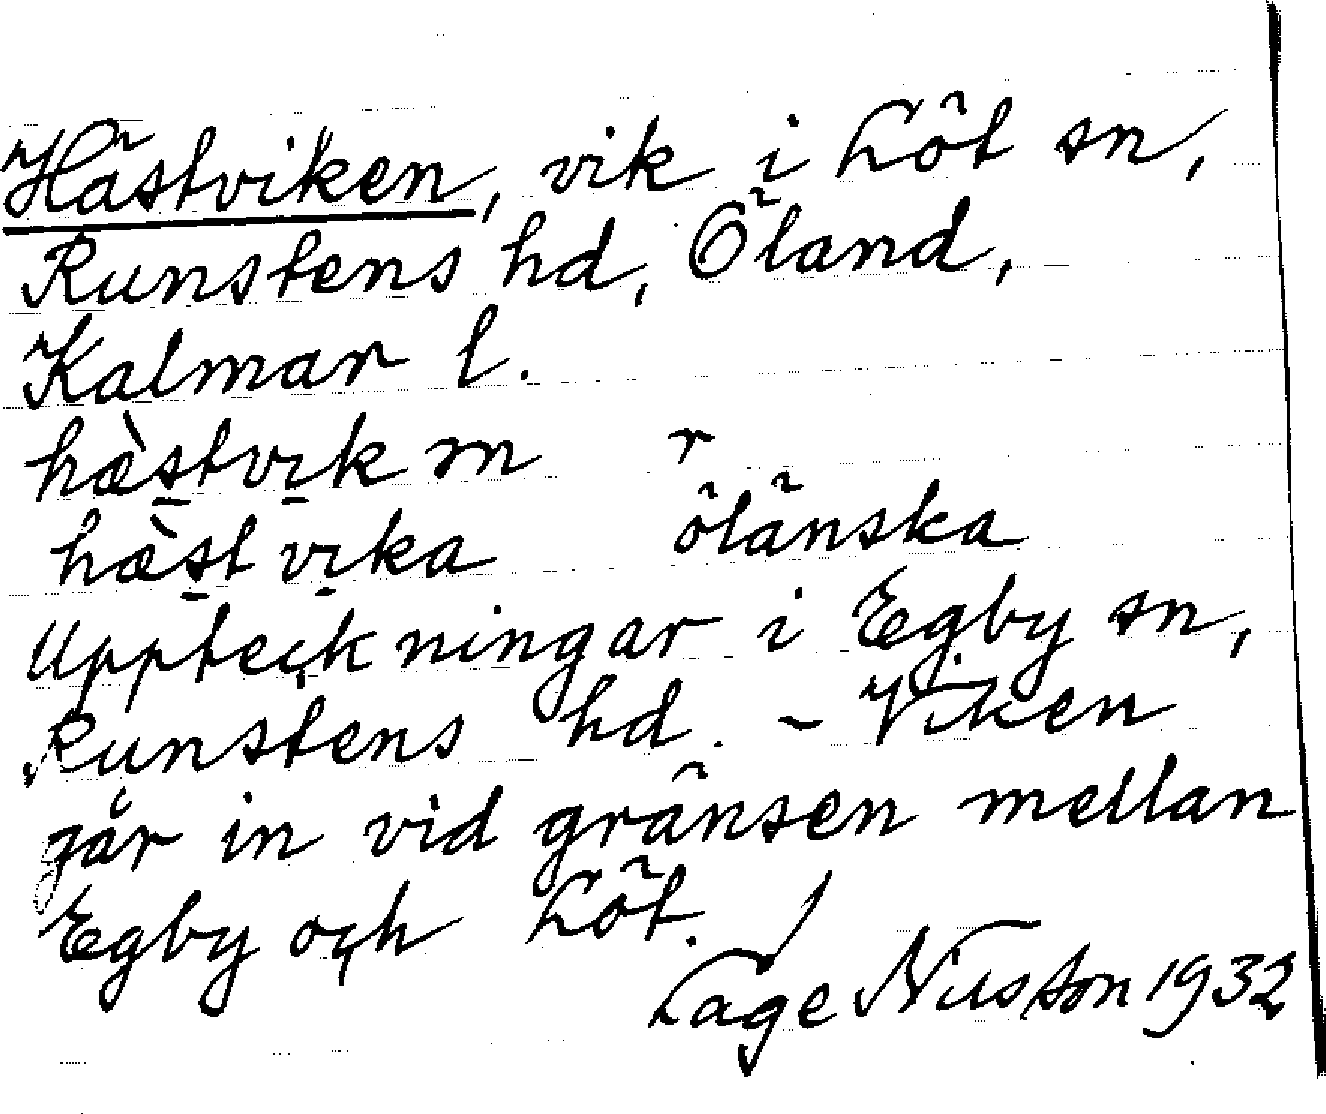 Hästviken, vik i Löt sn,
Runstens hd, Öland,
Kalmar l.
hæ̀s̲tvi̲k m r
hæ̀s̲t vi̲ka öländska
Uppteckningar i Egby sn,
Runstens hd. - Viken
går in vid gränsen mellan
Egby och Löt.
Lage Nilsson 1932